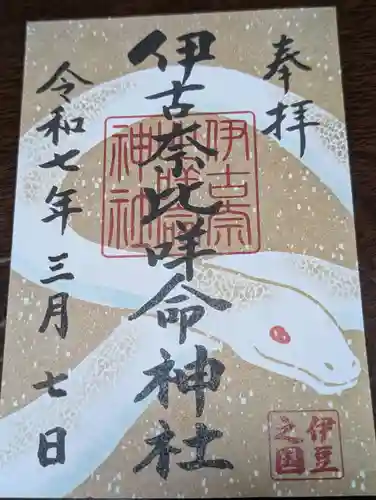 奉拝
伊古奈比咩命神社
令和七年三月七日
伊古奈
比咩命
神社
伊豆
之国